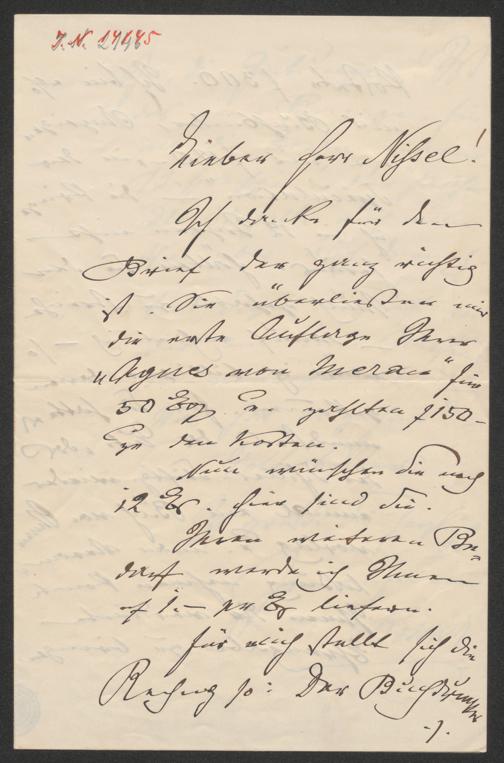 J. N. 27985
Lieber Herr Nissel!
Ich danke für den
Brief der ganz richtig
ist. Sie überließen mir
die erste Auflage Ihrer
„Agnes von Meran" für
50 Exp. u. zahlten f 150 –
zu den Kosten.
Nun wünschen Sie noch
12 Ex. Hier sind sie.
Ihren weiteren Be-
darf werde ich Ihnen
f 1.– pr Ex liefern.
Für mich stellt sich die
Rechng so: Der Buchdrucker